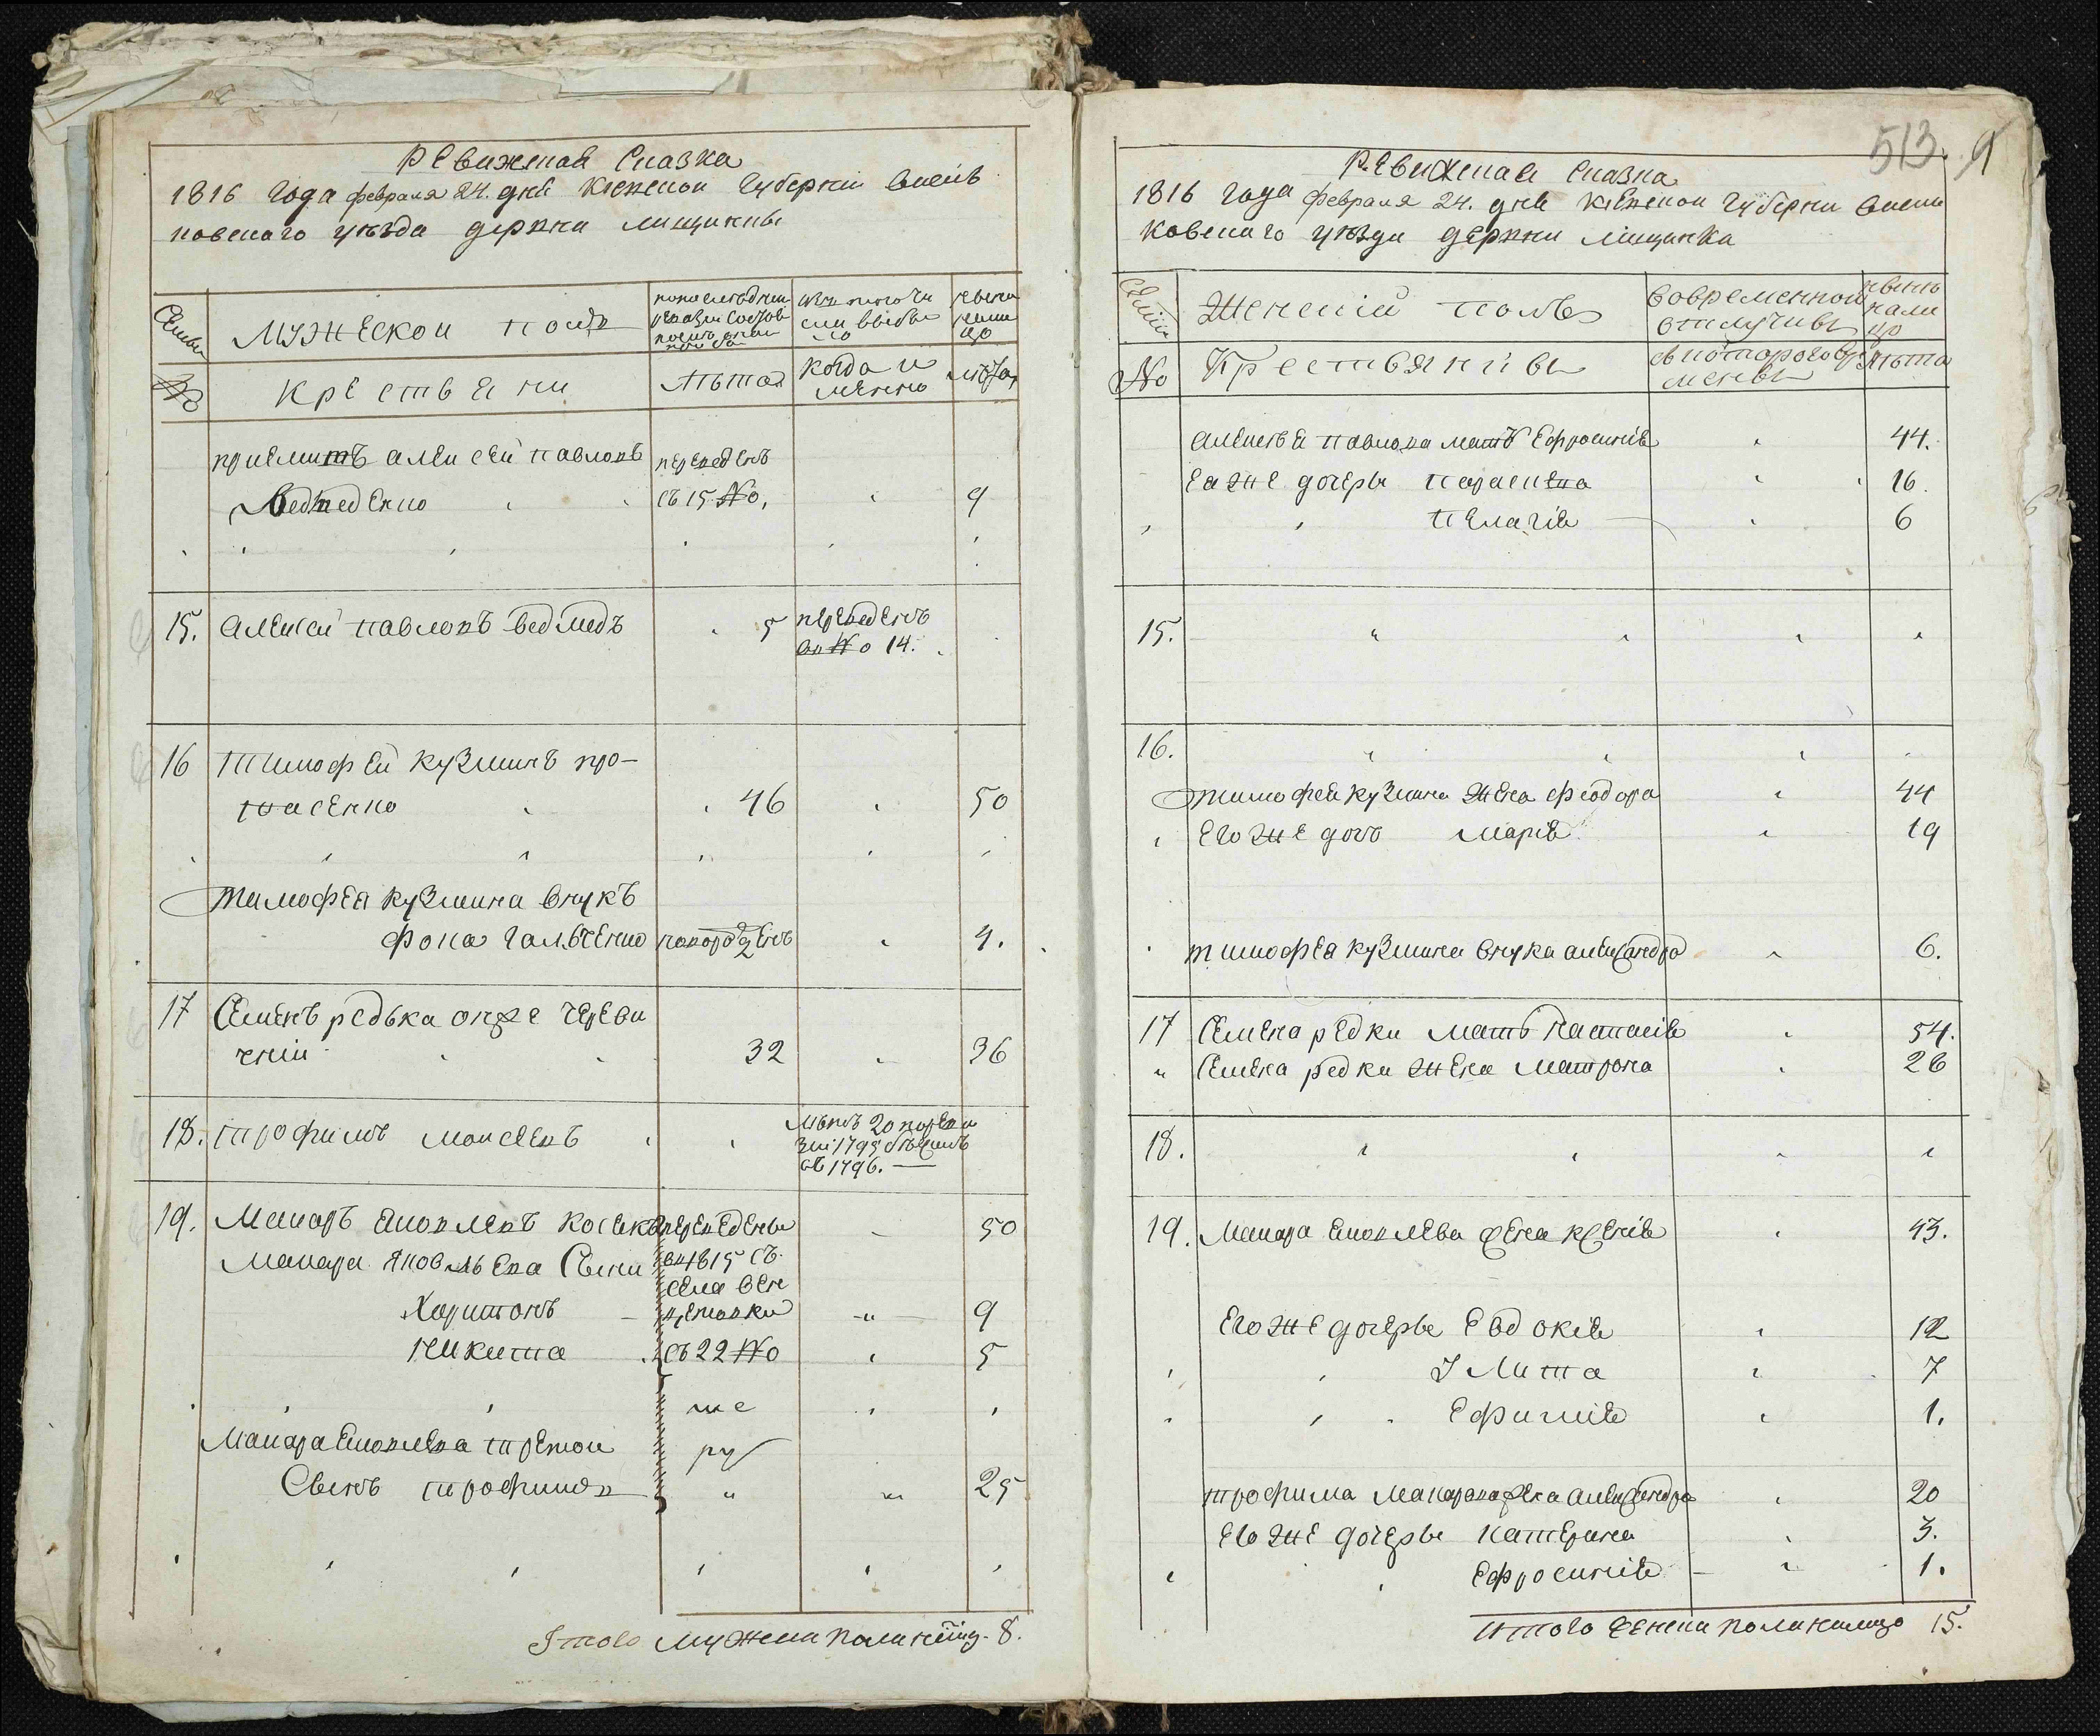 Ревижская Сказка
1816 Года февраля 24. дня Киевской Губернии Василь
ковскаго уезда дерквни Мищикивы
Семьи
Мужеской полъ
по последней
ревизии состоя
ло и
выбы
ло
ныне
на ли
цо
№
Крестьяни
Лета
когда и
менно
Лета
приемитъ алексей павловъ
переведенъ
Ведмеденко
съ 15 №,
9
15.
алексей павловъ ведмедъ
5
переведенъ
въ № 14.
16
Тимофей кузминъ про-
тасенко
46
50
тимофея кузмина внукъ
фока гальченко
новорожденъ
4.
17
Семенъ редька онже череви
чний
32
36
18.
трофимъ моисеевъ
20 по реви
зии 1795
въ 1796.
19.
Макаръ яковлевъ косенко
переведены
50
Макара яковльева Сыни
въ 1815 съ
села вен
Харитонъ
цетовки
9
никита
съ 22 №
5
Макара яковлева третои
Сынъ трофимъ
25
Итого мужеска пола налиц. 8.
513. 9
Ревижская Сказка
1816 Года февраля 24. дня Киевской Губерни Васили
ковскаго уезда дерквни Мищикка
Семьи
Женский полъ
Вовременной
отлучивы
ныне
нали
цо
№
Крестьянивы
с котораго вре
менвы
лета
алексея павлова мать Ефросиния
44.
еяже дочерь параскева
16.
пелагия
6
15.
16.
тимофея кузмина жена феодора
44
его же дочь мария
19
тимофея кузмина внука александра
6.
17
Семена редки мать настасия
54.
Семена редки жена матрона
26
18.
19.
Макара яковлева жена ксения
43.
Его же дочерье Евдокия
12
Улита
7
Ефимия
1.
трофима макарова жена александра
20
его же дочерье катерина
3.
ефросиния
1.
Итого женска пола налицо 15.